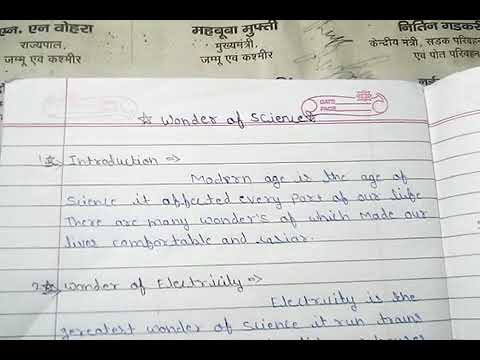 एन. एन वोहरा
राज्यपाल,
जम्मू एवं कश्मीर
महबूबा मुफ्ती
मुख्यमंत्री,
जम्मू एवं कश्मीर
नितिन गडकरी
केन्द्रीय मंत्री, सड़क परिवहन
एवं पोत परिवहन
DATE
PAGE
☆ Wonder of Science☆
1☆ Introduction ⇒
Modern age is the age of
Science it affected every Part of our life
There are many wonder's of which made our
lives comfortable and easiar.
2☆ Wonder of Electricity ⇒
Electricity is the
gereatest wonder of science it run trains